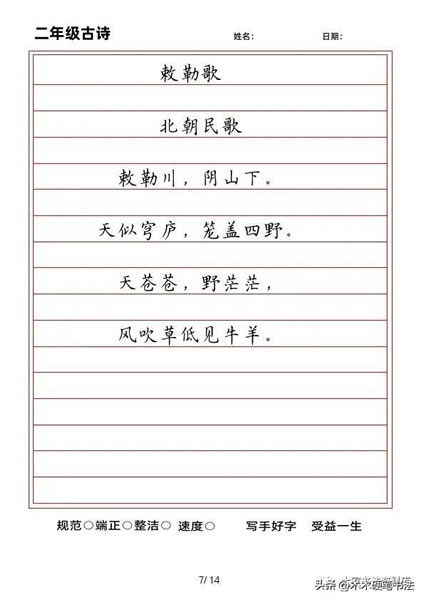 二年级古诗 姓名: 日期:
敕勒歌
北朝民歌
敕勒川，阴山下。
天似穹庐，笼盖四野。
天苍苍，野茫茫，
风吹草低见牛羊。
规范○端正○整洁○ 速度○ 写手好字 受益一生
7/14
头条@木木硬笔书法